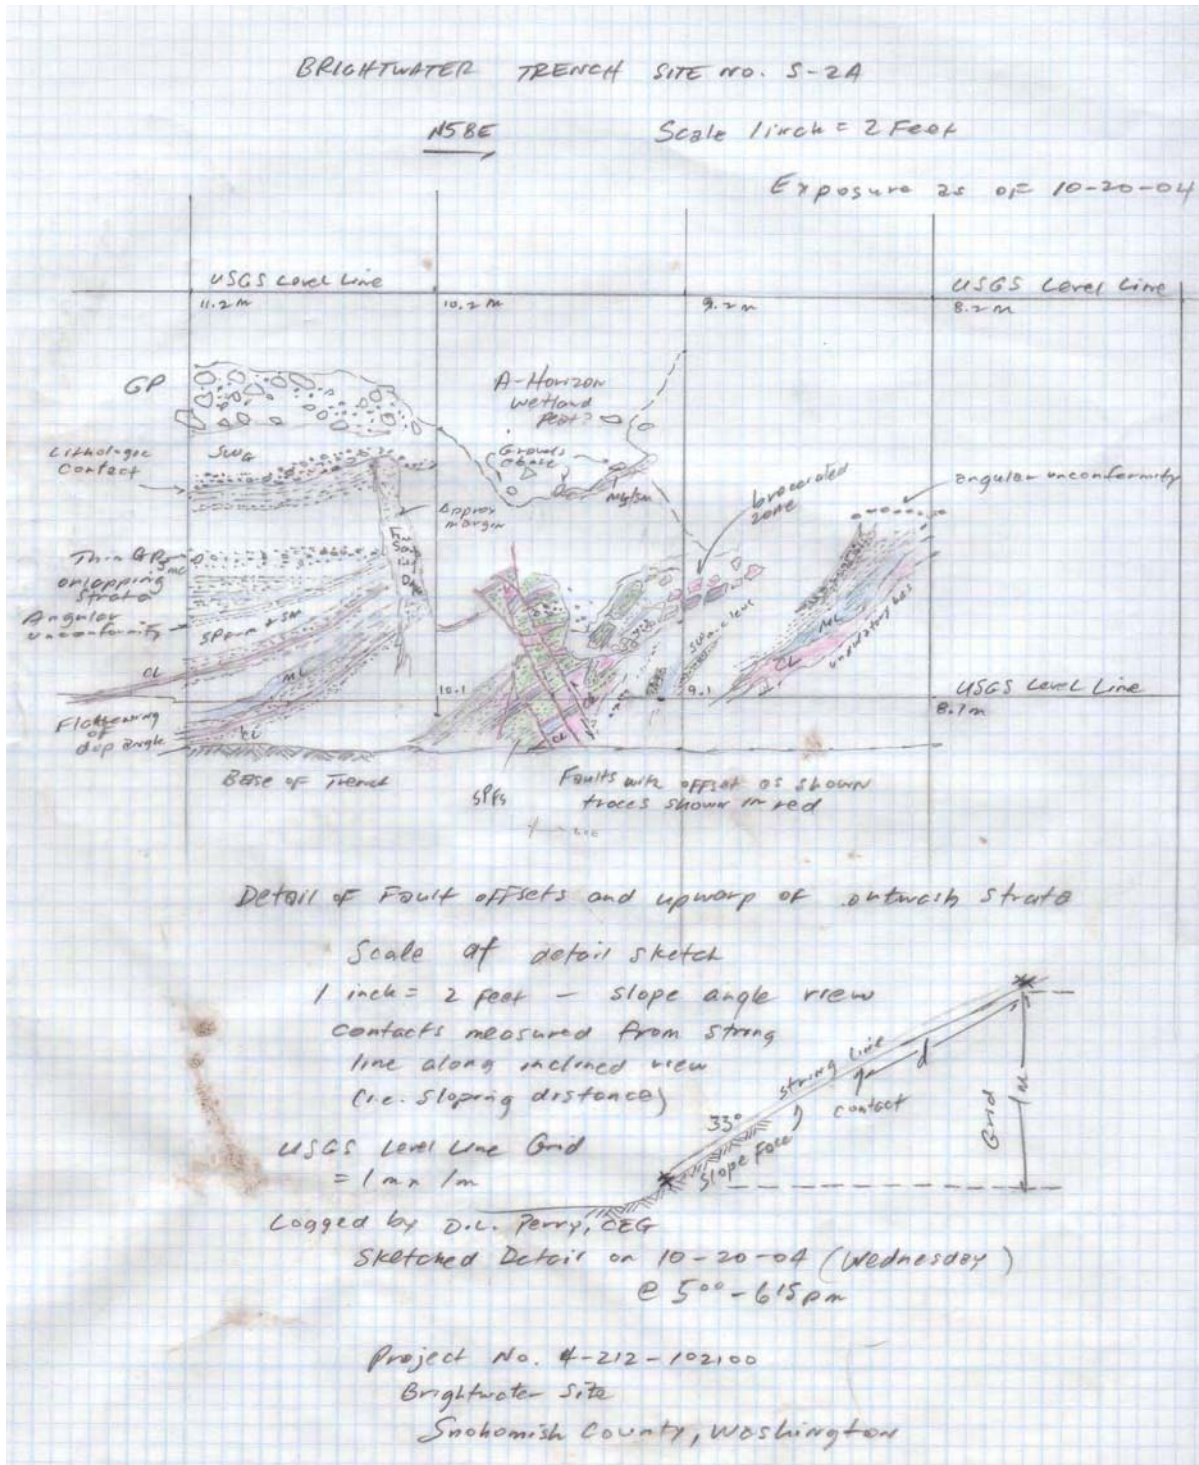 BRIGHTWATER TRENCH SITE NO. S-2A
N58E
Scale 1 inch = 2 Feet
Exposure as of 10-20-04
USGS Level Line
USGS Level Line
11.2 m
10.2 m
9.2 m
8.2 m
GP
A-Horizon
wetland
peat?
Lithologic
Contact
SWG
Gravels
@base
brecciated
zone
angular unconformity
Approx
margin
Thin GP
onlapping
strata
Angular
unconformity
SM
CL
ML
ML
CL
undulatory bds
10.1
9.1
USGS Level Line
8.1m
Flattening
of
dip angle
CL
CL
Base of Trench
Faults with offset as shown
traces shown in red
SPFS
Detail of Fault offsets and upwarp of outwash strata
Scale of detail sketch
1 inch = 2 feet - slope angle view
contacts measured from string
line along inclined view
(i.e. sloping distance)
string line
d
contact
33°
slope face
Grid
1m
USGS Level Line Grid
= 1m x 1m
Logged by D.L. Perry, CEG
Sketched Detail on 10-20-04 (Wednesday)
@ 5:00 - 6:15 pm
Project No. 4-212-102100
Brightwater Site
Snohomish County, Washington